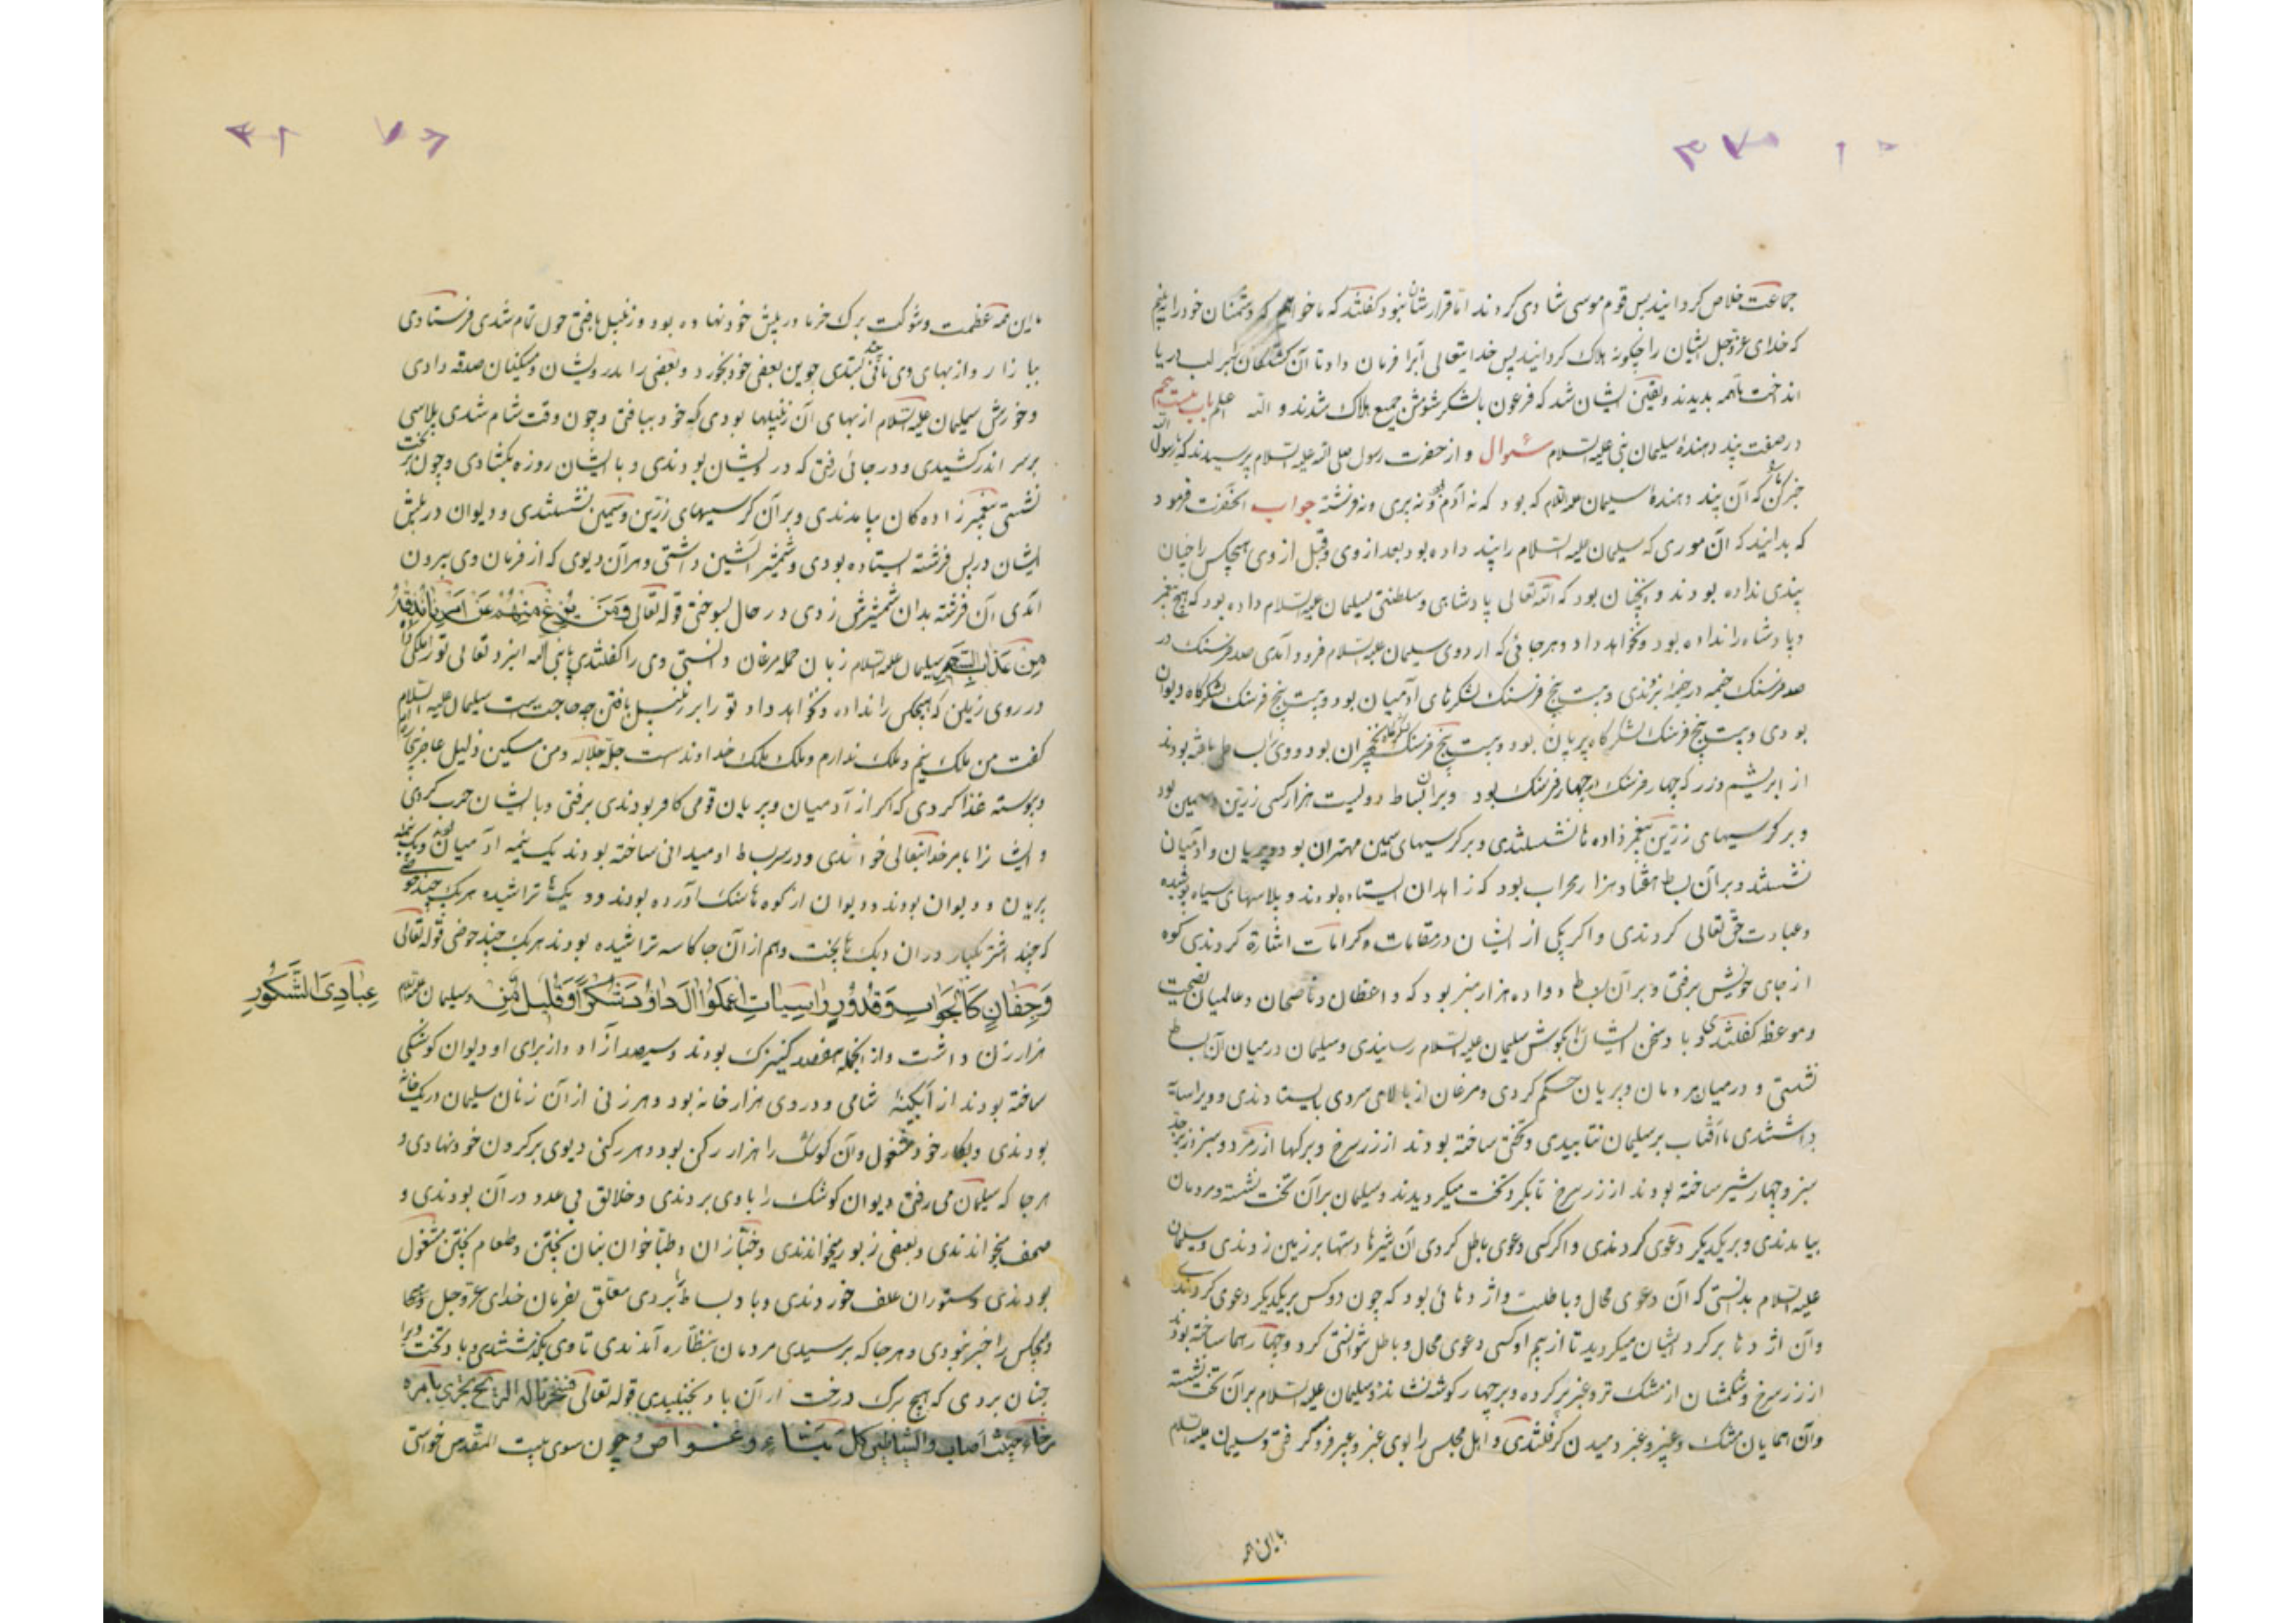 جماعت خلاص گردانید پس قوم موسی شادی کردند اما قرارشان نبود گفتند که ما خواهیم که دشمنان خود را ببینیم
که خدای عزوجل ایشان را چگونه هلاک گردانید پس خدایتعالی آبرا فرمان داد تا آن کشتگان بر لب دریا
انداخت تا همه بدیدند و یقین ایشان شد که فرعون با لشکر شومش جمیع هلاک شدند و الله اعلم باب بیست
در صفت پند دهندهٔ سیلمان نبی علیه السلام سئوال و از حضرت رسول صلی الله علیه السلام پرسیدند که یا رسول الله
خبر کن که آن پند دهندهٔ سیلمان علیه السلام که بود که نه آدم و نه پری و نه فرشته جواب آنحضرت فرمود
که بدانید که آن موری که سیلمان علیه السلام را پند داده بود بعد از وی و قبل از وی هیچکس را چنان
پندی نداده بودند و آنچنان بود که الله تعالی پادشاهی و سلطنتی بسیلمان علیه السلام داده بود که هیچ پیغمبر
و پادشاه را نداده بود و نخواهد داد و هر جائی که اردوی سیلمان علیه السلام فرود آمدی صد فرسنک در
صد فرسنک خیمه در خیمه بزدندی و بیست پنج فرسنک لشکرهای آدمیان بود و بیست پنج فرسنک لشکرگاه دیوان
بودی و بیست پنج فرسنک لشکرگاه پریان بود و بیست پنج فرسنک لشکرگاه نخچیران بود و وی را بساطی بافته بودند
از ابریشم و زر که چهار فرسنک در چهار فرسنک بود و بر آن بساط دولیست هزار کرسی زرین و سیمین بود
و بر کرسیهای زرین پیغمبر زاده ها نشستندی و بر کرسیهای سیمین مهتران بود و پریان و آدمیان
نشستند و بر آن بساط هفتاد هزار محراب بود که زاهدان ایستاده بودند و پلاسهای سیاه پوشیده
و عبادت حق تعالی کردندی و اگر یکی از ایشان در مقامات و کرامات اشارة کردندی کوه
از جای خویش برفتی و بر آن بساط دوازده هزار منبر بود که واعظان و ناصحان و عالمیان نصیحت
و موعظه گفتندی و باد سخن ایشان را بکوش سلیمان علیه السلام رسانیدی و سیلمان در میان آن بساط
نشستی و در میان مردمان و پریان حکم کردی و مرغان از بالای سر وی بایستادندی و ویرا سایه
داشتندی تا آفتاب بر سیلمان نتابیدی و تختی ساخته بودند از زر سرخ و برکها از زمرد و سبز و زبرجد
سبز و چهار شیر ساخته بودند از زر سرخ تا بکرد تخت میکردیدند و سیلمان بر آن تخت نشسته و مردمان
بیامدندی و بر یکدیکر دعوی کردندی و اگر کسی دعوی باطل کردی آن شیرها دستها بر زمین زدندی و سیلمان
علیه السلام بدانستی که آن دعوی محال و باطلست و اژدهائی بود که چون دو کس بر یکدیکر دعوی کردندی
و آن اژدها بر کرد ایشان میکردید تا از بیم او کسی دعوی محال و باطل نتوانستی کرد و چهار هما ساخته بودند
از زر سرخ و شکمشان از مشک تر و عنبر پر کرده و بر چهار کوشه نشانده و سیلمان علیه السلام بر آن تخت نشسته
و آن همایان مشک و عنبر و عبیر دمیدن کرفتندی و اهل مجلس را بوی عنبر و عبیر فرو کرفتی و سیلمان علیه السلام
با این همه
با این همه عظمت و شوکت برک خرما در پیش خود نهاده بود و زنبیل بافتی چون تمام شدی فرستادی
ببازار و از بهای وی نانی چند بستدی جوین بعضی خود بخورد و بعضی را بدرویشان و مسکینان صدقه دادی
و خورش سیلمان علیه السلام از بهای آن زنبیلها بودی که خود ببافتی و چون وقت شام شدی پلاسی
بر سر اندر کشیدی و در جائی رفتی که درویشان بودندی و با ایشان روزه بکشادی و چون بر تخت
نشستی پیغمبر زاده کان بیامدندی و بر آن کرسیهای زرین و سیمین نشستندی و دیوان در پیش
ایشان در پس فرشته ایستاده بودی و شمشیر آتشین داشتی و هر آن دیوی که از فرمان وی بیرون
آمدی آن فرشته بدان شمشیرش زدی در حال بسوختی قوله تعالی وَمَنْ یَزِغْ مِنْهُمْ عَنْ اَمْرِنَا نُذِقْهُ
مِنْ عَذَابِ السَّعِیرِ سیلمان علیه السلام زبان جمله مرغان دانستی وی را گفتندی یا نبی الله ایزد تعالی تو را ملکی داد
در روی زمین که هیچکس را نداده و نخواهد داد تو را بر زنبیل بافتن چه حاجت ست سیلمان علیه السلام
کفت من ملک نیم و ملک ندارم و ملک ملک خداوندست جل جلاله و من مسکین و ذلیل عاجز
و پیوسته غذا کردی که اگر از آدمیان و پریان قومی کافر بودندی برفتی و با ایشان حرب کردی
و ایشانرا بامر خدایتعالی خواندی و در سر بساط او میدانی ساخته بودند یک نیمه آدمیان بود و یک نیمه
پریان و دیوان بودند و دیوان از کوه ها سنک آورده بودند و دیک ها تراشیده هر یک چند حوضی
که چند اشتر بیکبار در آن دیک ها بپخت و هم از آن جا کاسه تراشیده بودند هر یک چند حوضی قوله تعالی
وَجِفَانٍ کَالْجَوَابِ وَقُدُورٍ رَاسِیَاتٍ اِعْمَلُوا آلَ دَاوُدَ شُکْرًا وَقَلِیلٌ مِنْ عِبَادِیَ الشَّکُورِ و سیلمان علیه السلام
هزار زن داشت و از آنجمله هفصد کنیزک بودند و سیصد آزاد و از برای او دیوان کوشکی
ساخته بودند از آبکینه شامی و در وی هزار خانه بود و هر زنی از آن زنان سیلمان در یک خانه
بودندی و بکار خود مشغول و آن کوشک را هزار رکن بود و هر رکنی دیوی بر کردن خود نهادی و
هر جا که سیلمان می رفتی دیوان کوشک را با وی بردندی و خلائق بی عدد در آن بودندی و
صحف میخواندندی و بعضی زبور میخواندندی و خبازان و طباخوان بنان پختن و طعام پختن مشغول
بودندی و ستوران علف خوردندی و باد بساط را بردی معلق بفرمان خدای عزوجل
و هیچکس را خبر نبودی و هر جا که برسیدی مردمان بنظاره آمدندی تا وی بکذشتندی و باد تخت ویرا
چنان بردی که هیچ برک درخت از آن باد نجنبیدی قوله تعالی فسخرنا له الریح تجری بامره
رخاء حیث اصاب والشیاطین کل بناء وغواص و چون سوی بیت المقدس خواستی